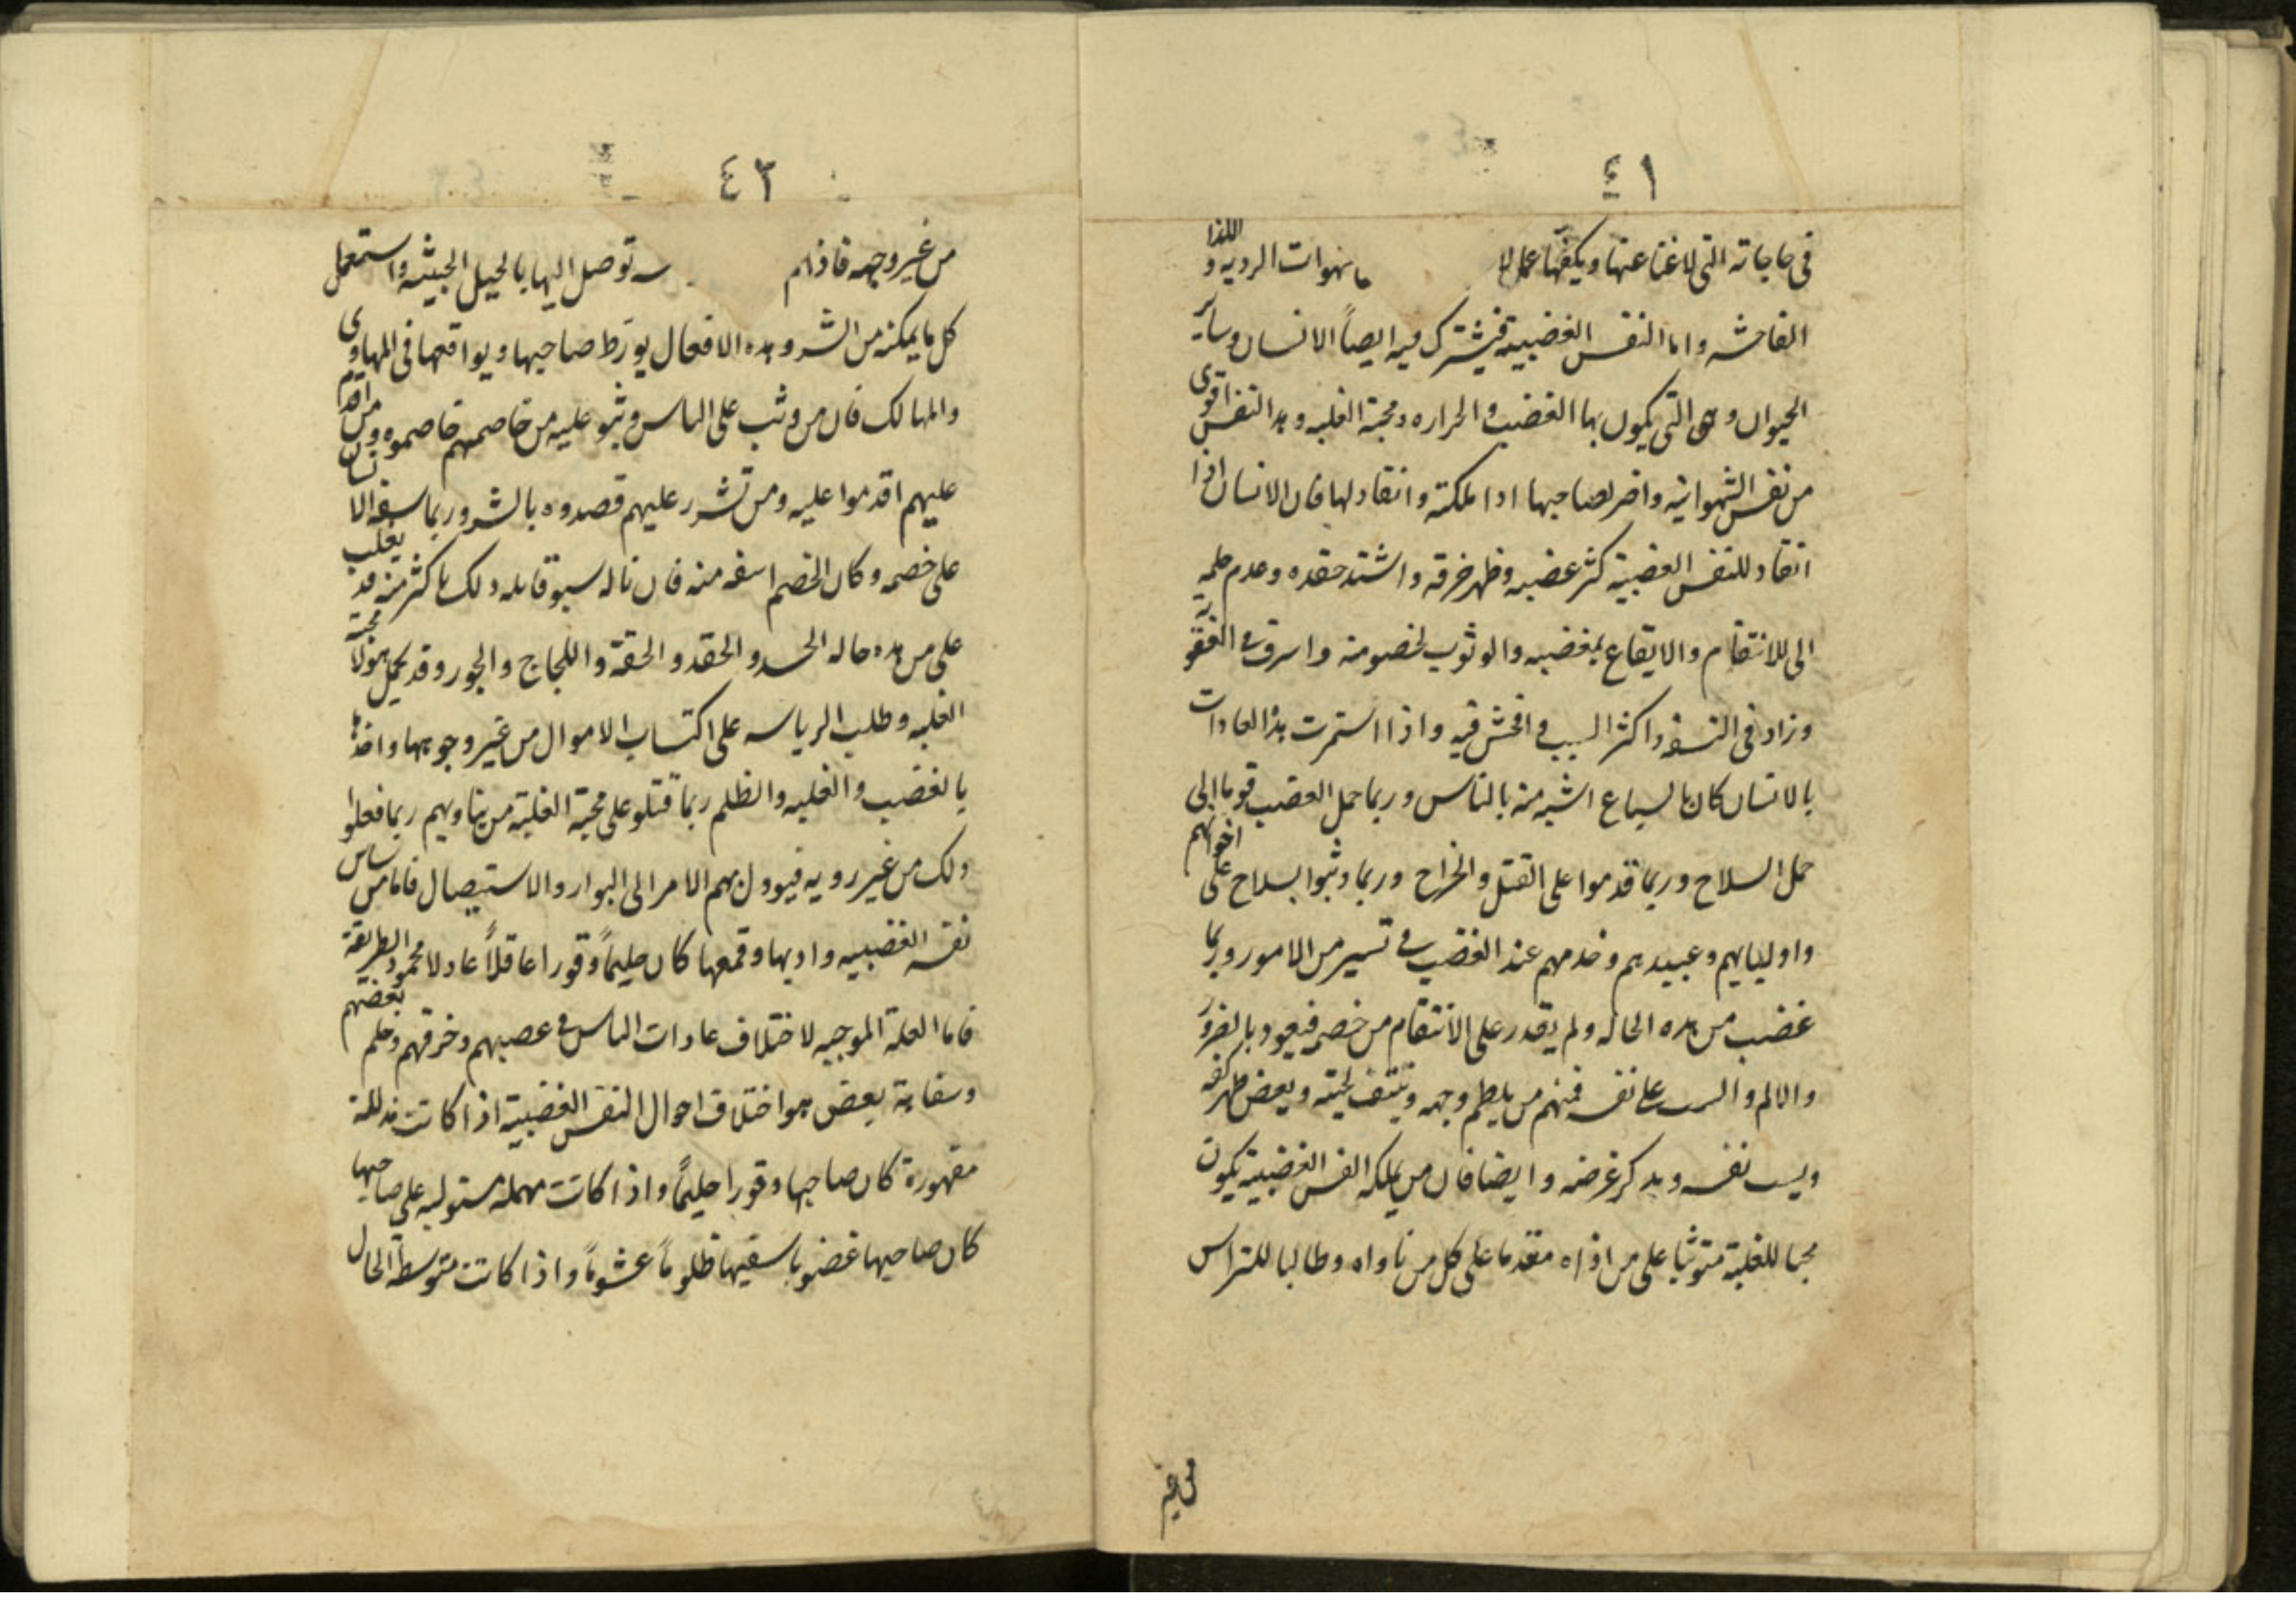 ٤١
في حاجاته التي لا غنا عنها ويكفها عملا الشهوات الرديه و اللذا
الفاحشه واما النفس الغضبية فيشترك فيه ايضاً الانسان وساير
الحيوان وهى التي يكون بها الغضب والحراره ومحبة الغلبه وهده النفس اقوى
من نفس الشهوانيه واضر لصاحبها اذا ملكته وانقاد لها فان الانسان اذا
انقاد للنفس الغضبية كثر غضبه وظهر خرقه واشتد حقده وعدم حلمه
الى للانتقام والايقاع بمغضبه والوثوب لخصومنه واسرف في
وزاد في التسفه واكثر السب في افحش فيه واذا استمرت هذه العادات
بالانسان كان بالسباع اشبه منه بالناس وربما حمل الغضب قوما الى
حمل السلاح وربما قدموا على القتل والجراح وربما وثبوا بسلاح على اخوتهم
واوليايهم وعبيدهم وخدمهم عند الغضب في تسير من الامور وربما
غضب من هده الحاله ولم يقدر على الانتقام من خصمه فيعود بالضرر
والالم والسب على نفسه فمنهم من يلطم وجهه وينتف لحيته ويعض ظهر كفه
ويسب نفسه ويدكر غرضه وايضا فان من يملكه النفس الغضبية يكون
محبا للغلبة متوثبا على من اذاه مقدما على كل من ناواه وطالبا للتراس
من غير
٤٣
من غير وجهه فاذا لم توصل اليها بالحيل الخبيثه واستعمل
كل ما يمكنه من الشر وهده الافعال يورّط صاحبها ويواقعها في المهاوى
والمهالك فان من وثب على الناس وثبو عليه من خاصمهم خاصموه ومن اقدم
عليهم اقدموا عليه ومن تشرر عليهم قصدوه بالشر وربما سفه الانسان
على خصمه وكان الخصم اسفه منه فان ناله سبو قابله ولك باكثر منه قد يغلب
على من هده حاله الحسد والحقد والحقة واللجاج والجور وقد يحمل هولا محبة
الغلبه وطلب الرياسه على اكتساب الاموال من غير وجوهها واخذها
بالغضب والغلبه والظلم ربما قتلو على محبة الغلبة من يناويهم ربما فعلوا
ولك من غير رويه فيوول بهم الامر الى البوار والاستيصال فاما من ساس
نفسه الغضبيه وادبها وقمعها كان حليماً وقورا عاقلاً عادلا محمود الطريقة
فاما العلة الموجبه لاختلاف عادات الناس في عصبهم وخرقهم وحلم بعضهم
وسفاهة بعض هو اختلاف احوال النفس الغضبية اذا كانت مذللة
مقهورة كان صاحبها وقورا حليماً واذا كانت مهمله مستوليه على صاحبها
كان صاحبها غضوبا سفيها ظلوماً غشوماً واذا كانت متوسطة الحال